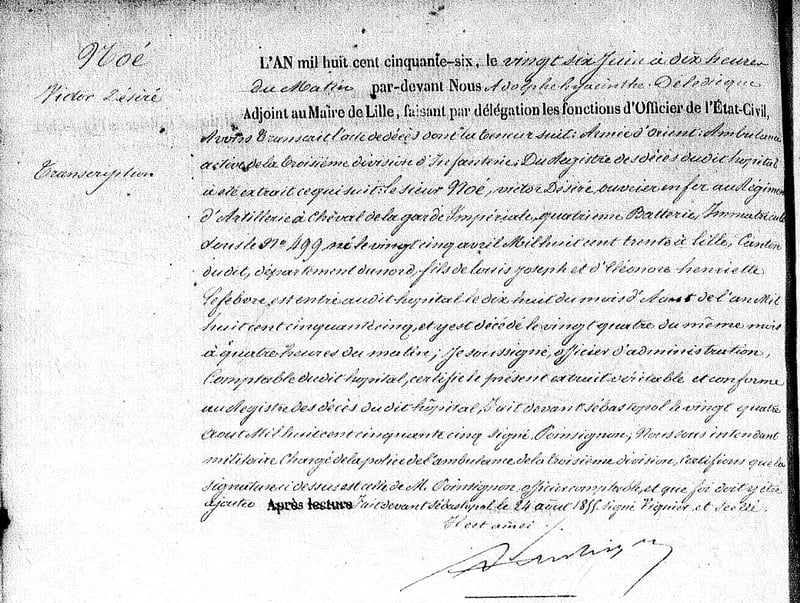 Noé
Victor Désiré
Transcription
L'AN mil huit cent cinquante-six, le vingt six Juin à dix heures
du Matin par-devant Nous Adolphe hyacinthe Deledicque
Adjoint au Maire de Lille, faisant par délégation les fonctions d'Officier de l'État-Civil,
Avons transcrit l'acte de décès dont la teneur suit: Armée d'Orient: Ambulance
active de la troisième division d'Infanterie. Du Registre des décès du dit hopital
à été extrait ce qui suit: le sieur Noé, victor Désiré, ouvrier en fer au Régiment
d'Artillerie à Cheval de la garde Impériale, quatrieme Batterie, Immatriculé
sous le No 499 né le vingt cinq avril Mil huit cent trente à lille, Canton
du dit, département du nord, fils de louis Joseph et d'Eléonore henriette
Lefebvre, est entré au dit hopital le dix huit du mois d'Aout de l'an Mil
huit cent cinquante cinq, et y est décédé le vingt quatre du même mois
à quatre heures du matin; Je soussigné, officier d'administration,
Comptable du dit hopital, certifie le présent extrait véritable et conforme
au Registre des décès du dit hôpital, fait devant sébastopol le vingt quatre
aout Mil huit cent cinquante cinq signé Poinsignon, Nous sous intendant
militaire Chargé de la police de l'ambulance de la troisième division, Certifions que la
signature ci dessus est celle de M. Poinsignon, officier comptable, et que foi doit y être
ajoutée Après lecture fait devant Sébastopol le 24 aout 1855. signé Viguier et scellé.
C'est ainsi.